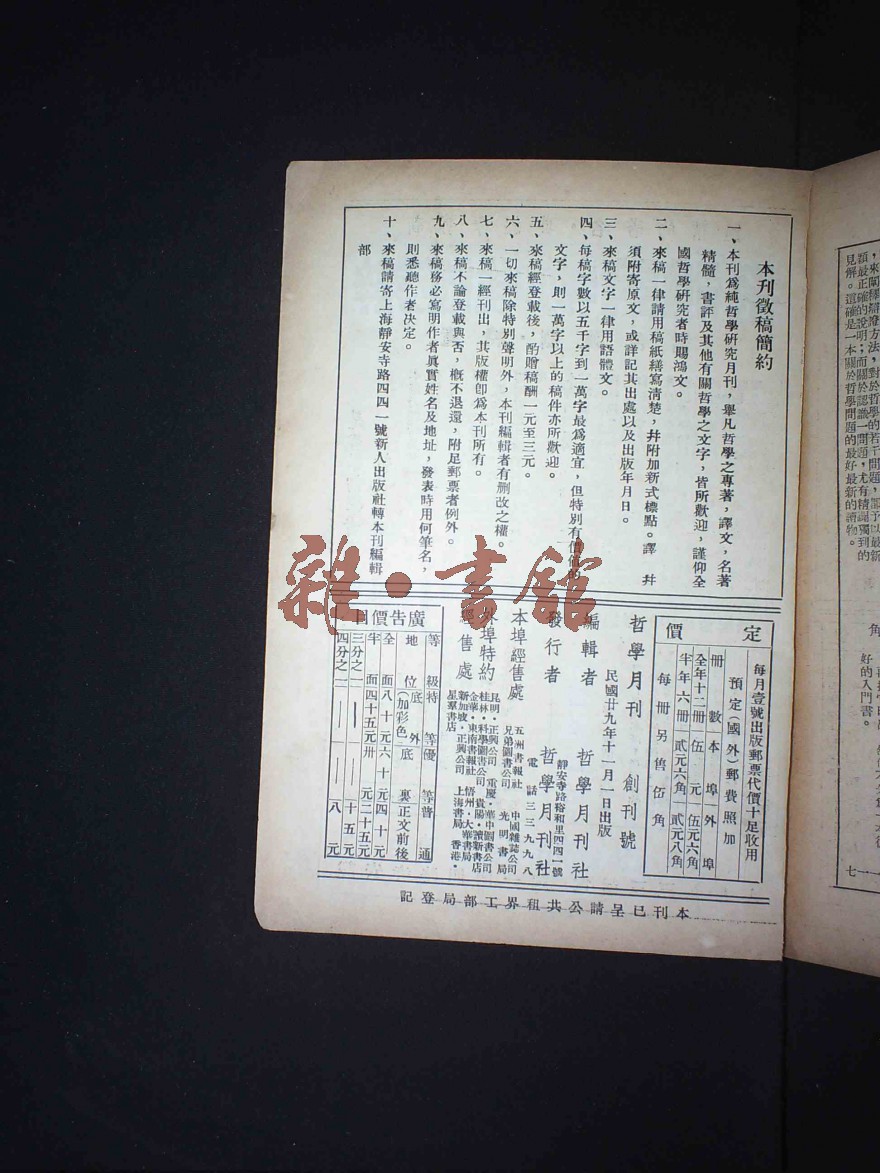 本刊徵稿簡約
一、本刊爲純哲學硏究月刊，舉凡哲學之專著，譯文，名著
精髓，書評及其他有關哲學之文字，皆所歡迎，謹仰全
國哲學硏究者時賜鴻文。
二、來稿一律請用稿紙繕寫清楚，幷附加新式標點。譯幷
須附寄原文，或詳記其出處以及出版年月日。
三、來稿文字一律用語體文。
四、每稿字數以五千字到一萬字最爲適宜，但特別有價值
文字，則一萬字以上的稿件亦所歡迎。
五、來稿經登載後，酌贈稿酬一元至三元。
六、一切來稿除特別聲明外，本刊編輯者有刪改之權。
七、來稿一經刊出，其版權卽爲本刊所有。
八、來稿不論登載與否，槪不退還，附足郵票者例外。
九、來稿務必寫明作者眞實姓名及地址，發表時用何筆名，
則悉聽作者决定。
十、來稿請寄上海靜安寺路四四一號新人出版社轉本刊編輯
部
定價
每月壹號出版郵票代價十足收用
預定（國外）郵費照加
冊數 本埠 外埠
全年十二冊 伍元 伍元六角
半年六冊 貳元六角 貳元八角
每冊另售伍角
哲學月刊 創刊號
民國廿九年十一月一日出版
編輯者 哲學月刊社
靜安寺路裕和里四四一號
發行者 哲學月刊社
電話三三九九八
本埠經售處
五洲書報社 中國雜誌公司
兄弟圖書公司 光明書局
外埠特約
經售處
昆明·正興公司 重慶·華中圖書公司
桂林·科學圖書公司 貴陽·讀新書店
金華·東南書報社 梧州·大華書局
新加坡·正興公司 上海書局 香港·
星羣書店
廣告價目
等級 特等 優等 普通
地位 底外（加彩色） 底裏 正文前後
全面 八十元 六十元 四十元
半面 四十五元 卅元 二十五元
三分之一 — — 十五元
四分之一 — — 八元
本刊已呈請公共租界工部局登記
雜·書館
來闡釋辯證方法，對於哲學的若干問題，都予以最新
類最正確的說明；而關於認識一問題，尤有精闢獨到的
見解。這確是一本關於哲學問題的最好最新的讀物。
角
好的入門書。
一一七